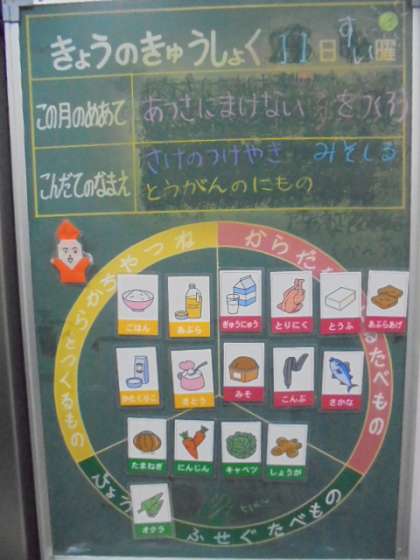 きょうのきゅうしょく 11日 すい曜
この月のめあて
あつさにまけない をつくろう
こんだてのなまえ
さけのつけやき みそしる
とうがんのにもの
ちからやねつ
となるもの
からだ
るたべもの
ごはん あぶら ぎゅうにゅう とりにく とうふ あぶらあげ
かたくりこ さとう みそ こんぶ さかな
たまねぎ にんじん キャベツ しょうが
オクラ
ふせぐたべもの